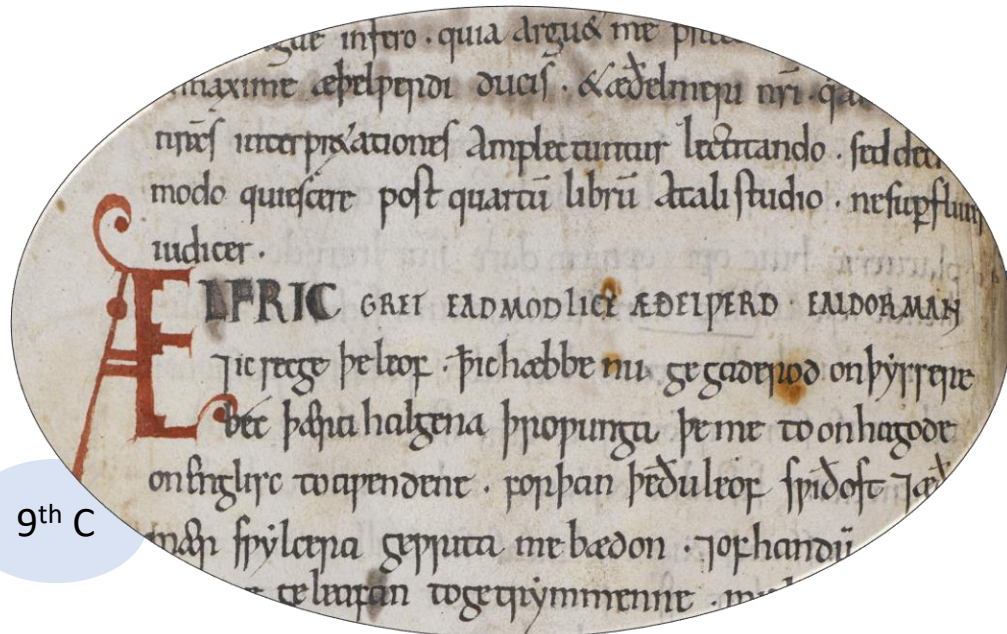 infero · quia arguet me
maxime æþelƿerdi ducis · & æðelmeri nr̄i · q
nr̄ēs interpretationes amplectuntur lectitando · sed decr
modo quiescere post quartū librū a tali studio · ne suꝑfluus
iudicer ·
ÆLFRIC GRET EADMODLICE ÆÐELƿERD · EALDORMAN
⁊ ic secge þe leof · ꝥ ic hæbbe nu gegaderod on þyssere
bec þæra halgena þroƿunga þe me to onhagode
on englisc to aƿendene · forþan þe ðu leof sƿiðost ⁊ æð
mær sƿylcera geƿrita me bædon · ⁊ of handū
geleafan to getrymmenne ·
9th C